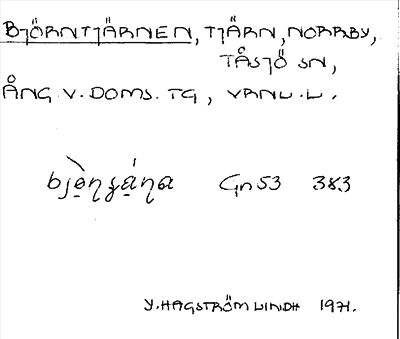 BJÖRNTJÄRNEN, TJÄRN, NORRBY,
TÅSJÖ SN,
ÅNG. V. DOMS. TG, VRNL.L.
Gn 53 383
Y. HAGSTRÖM LINDH 1971.